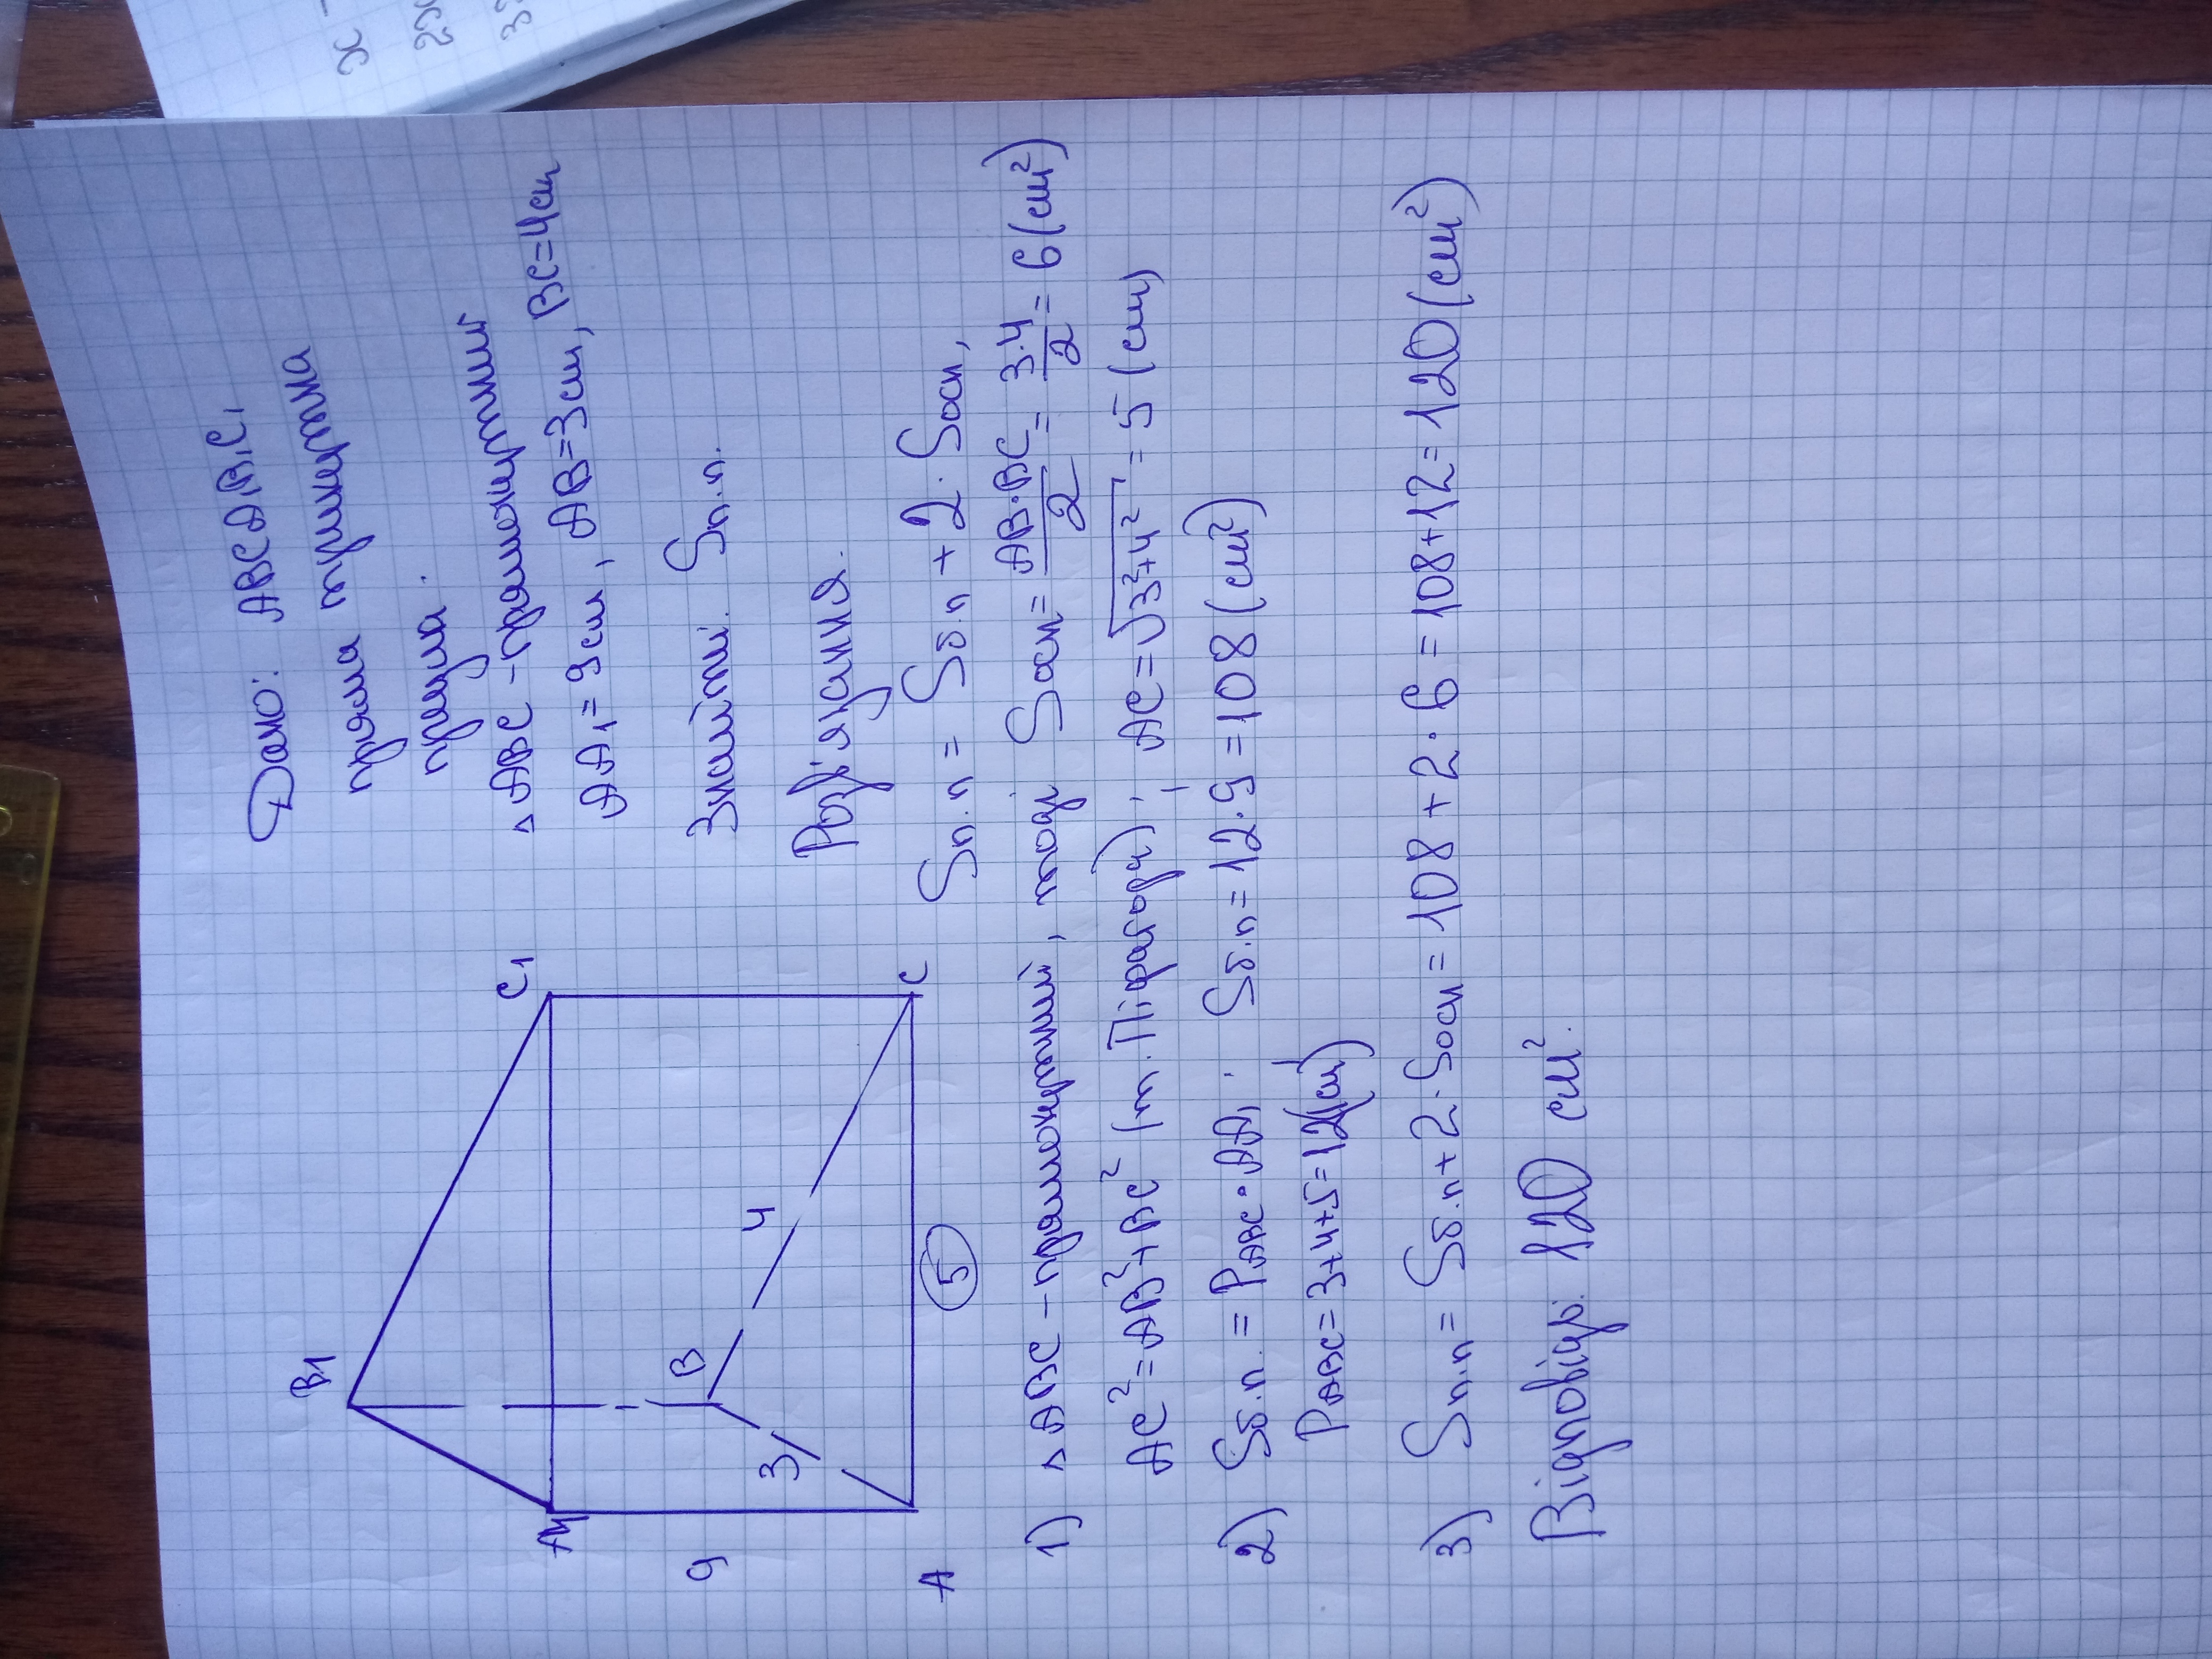 Дано: ABCA₁B₁C₁
пряма трикутна
призма.
△ABC - прямокутний
AA₁ = 9см, AB=3см, BC=4см
Знайти: Sп.п.
Розв'язання.
Sп.п = Sб.п + 2·Sосн,
B1
C1
A1
B
4
3
9
C
A
5
1) △ABC - прямокутний, тоді Sосн = AB·BC/2 = 3·4/2 = 6 (см²)
AC² = AB² + BC² (т. Піфагора); AC = √3²+4² = 5 (см)
2) Sб.п. = PABC · AA₁; Sб.п = 12·9 = 108 (см²)
PABC = 3+4+5 = 12(см)
3) Sп.п = Sб.п + 2·Sосн = 108 + 2·6 = 108+12 = 120 (см²)
Відповідь: 120 см².
x -